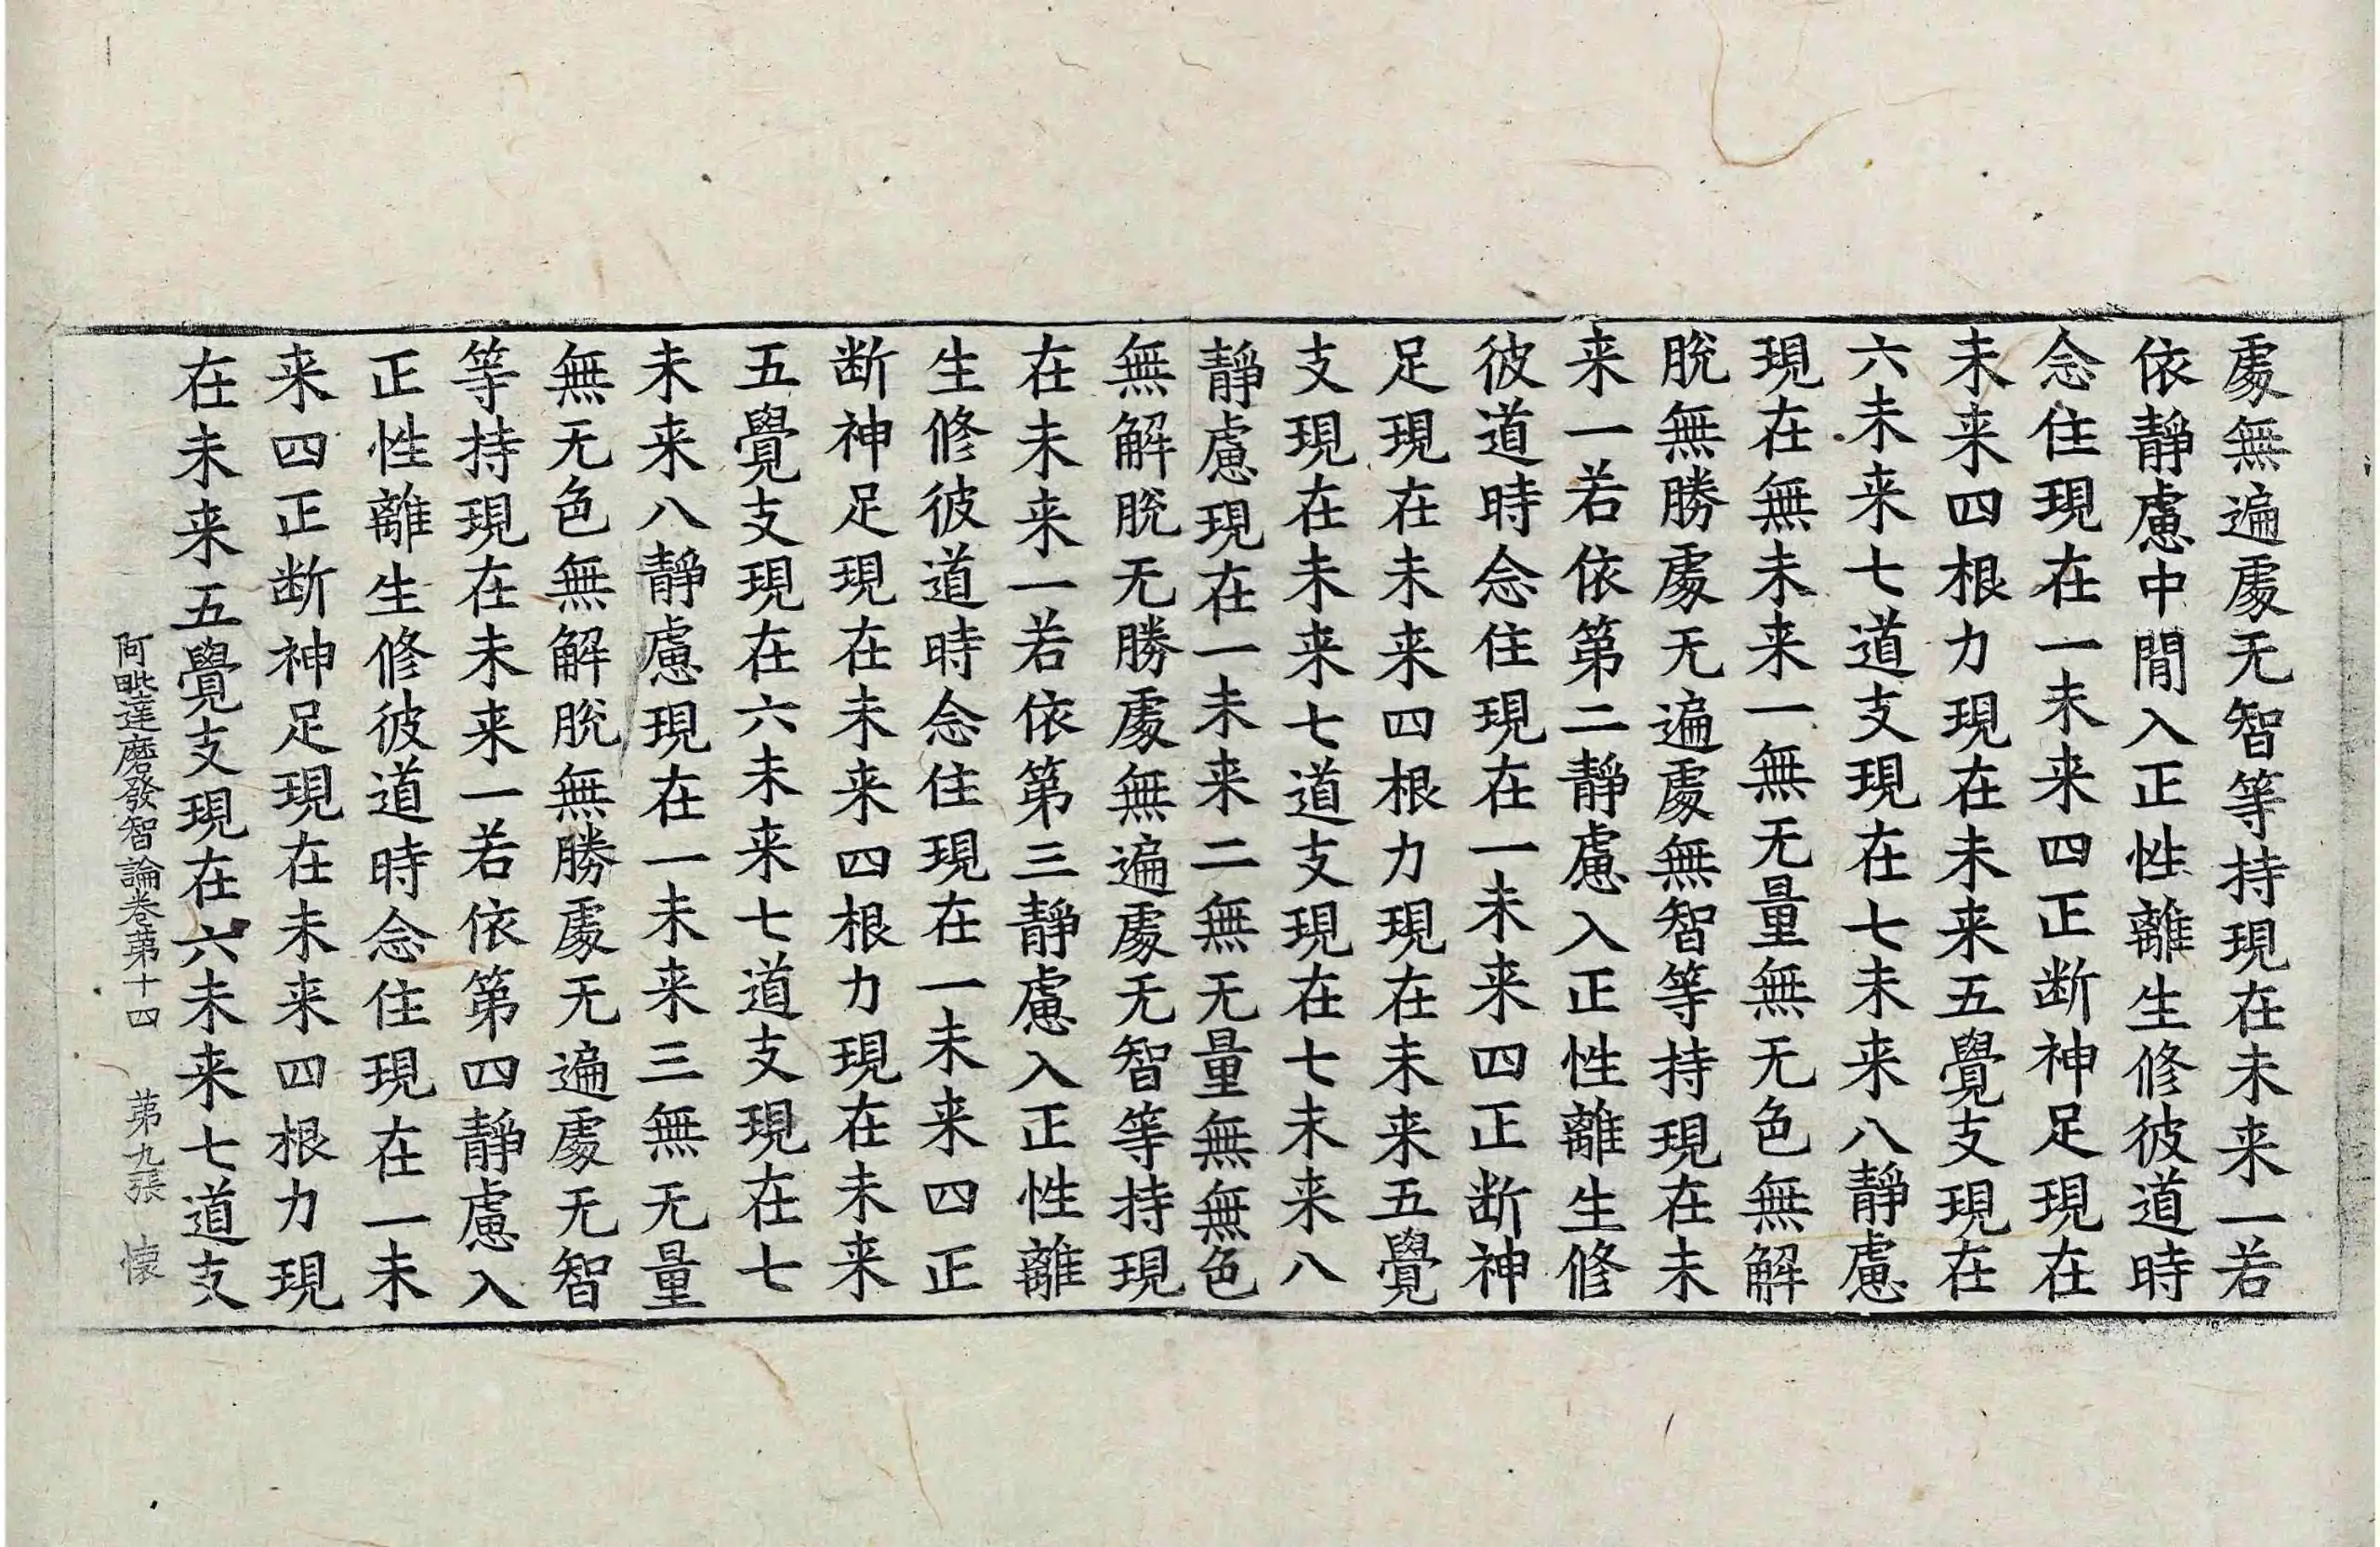 處無遍處无智等持現在未来一若
依靜慮中閒入正性離生修彼道時
念住現在一未来四正断神足現在
未来四根力現在未来五覺支現在
六未来七道支現在七未来八靜慮
現在無未来一無无量無无色無解
脫無勝處无遍處無智等持現在未
来一若依第二靜慮入正性離生修
彼道時念住現在一未来四正断神
足現在未来四根力現在未来五覺
支現在未来七道支現在七未来八
靜慮現在一未来二無无量無無色
無解脫无勝處無遍處无智等持現
在未来一若依第三靜慮入正性離
生修彼道時念住現在一未来四正
断神足現在未来四根力現在未来
五覺支現在六未来七道支現在七
未来八靜慮現在一未来三無无量
無无色無解脫無勝處无遍處无智
等持現在未来一若依第四靜慮入
正性離生修彼道時念住現在一未
来四正断神足現在未来四根力現
在未来五覺支現在六未来七道支
阿毗達磨發智論卷苐十四 苐九張 懐